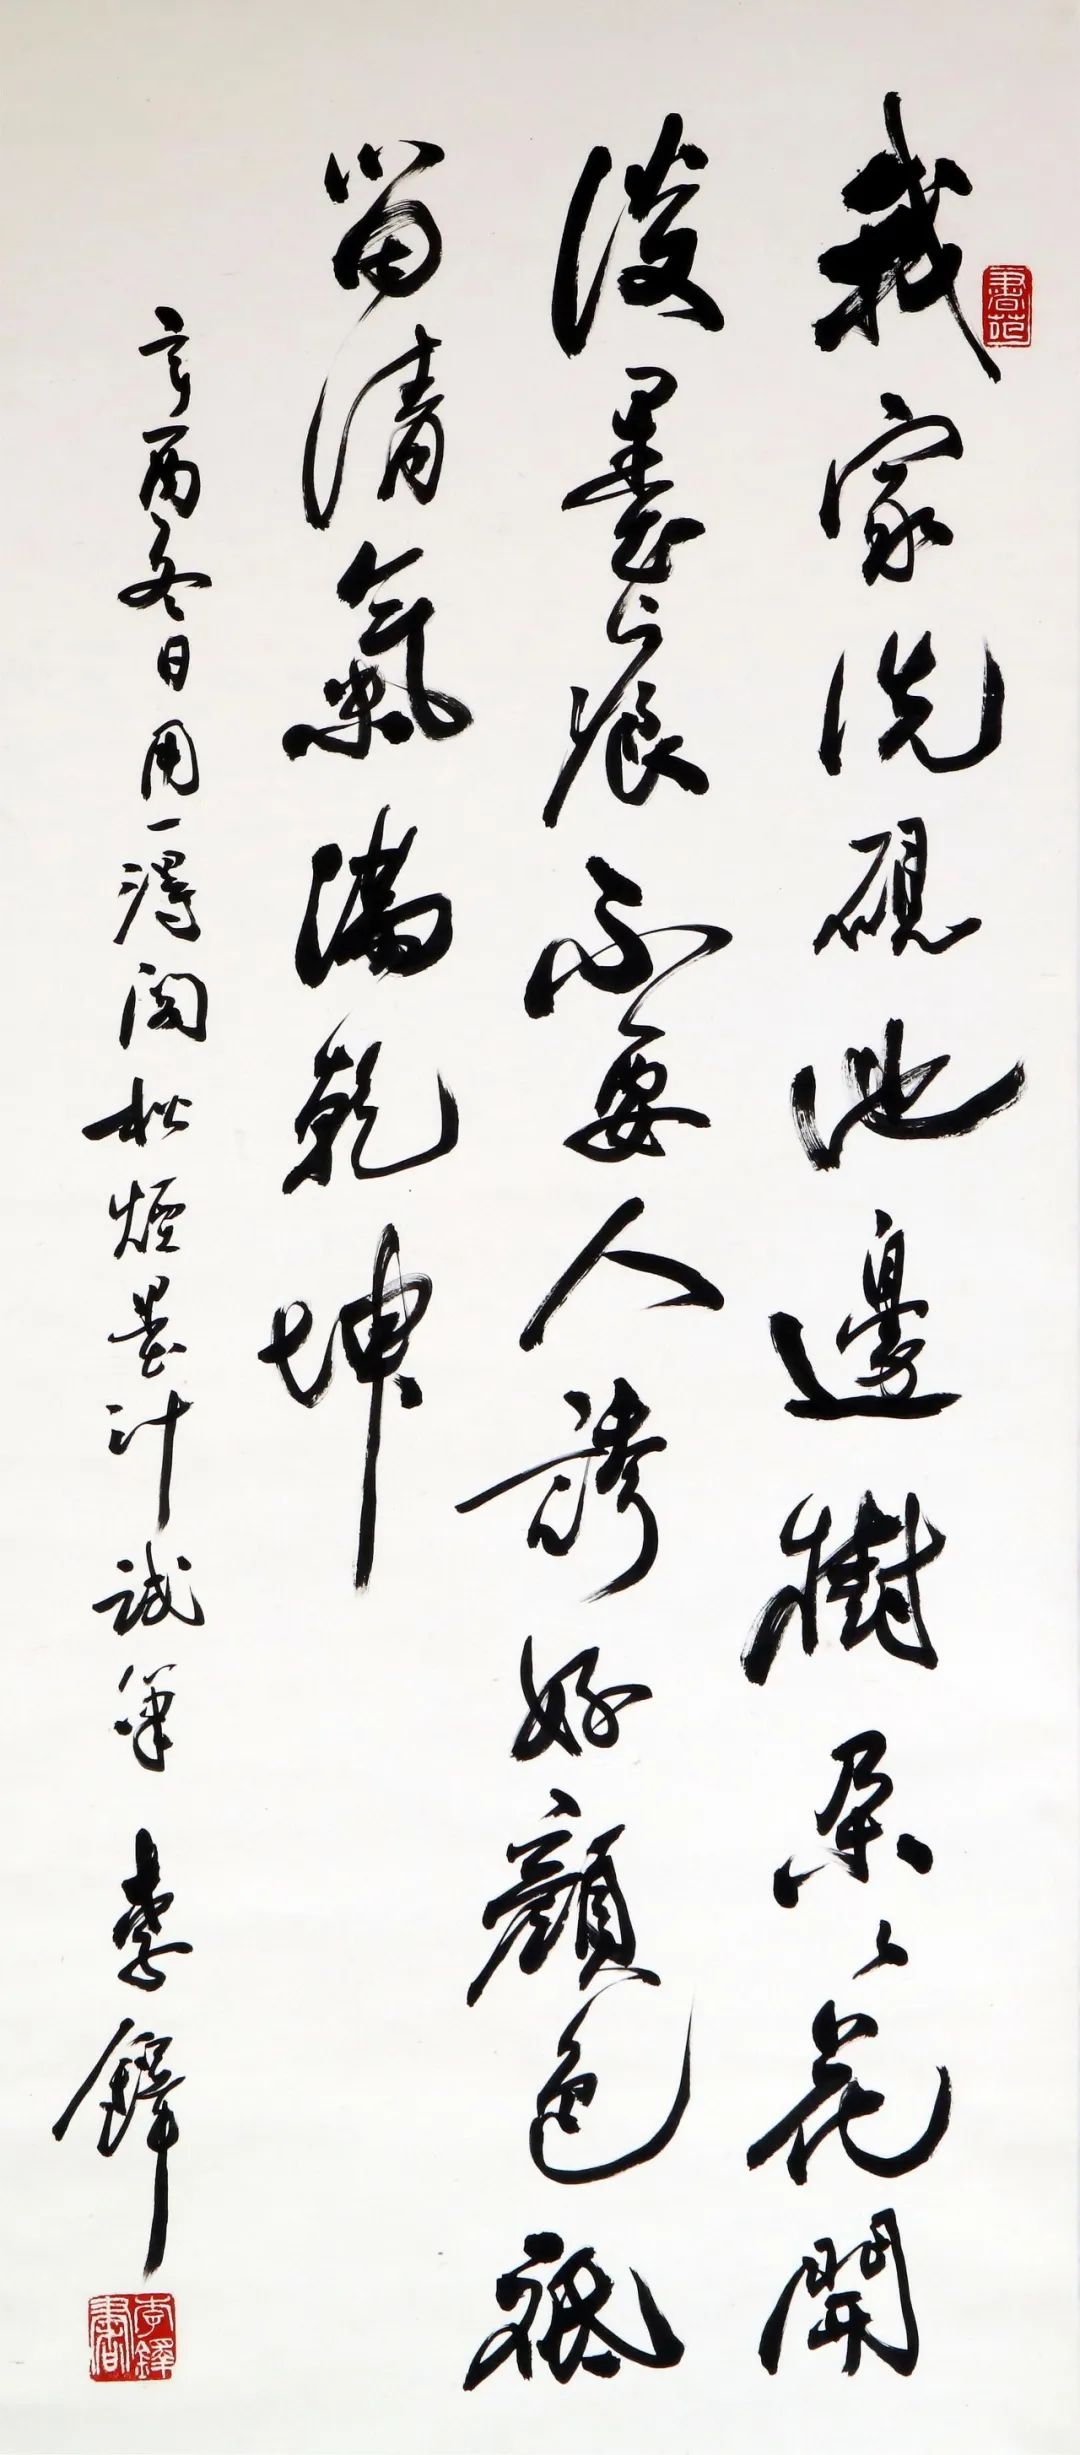 我家洗硯池邊樹朵々花開
淡墨痕不要人誇好顏色祗
留清氣滿乾坤
辛酉冬日用一得閣松煙墨汁試筆 李鐸
李鐸書